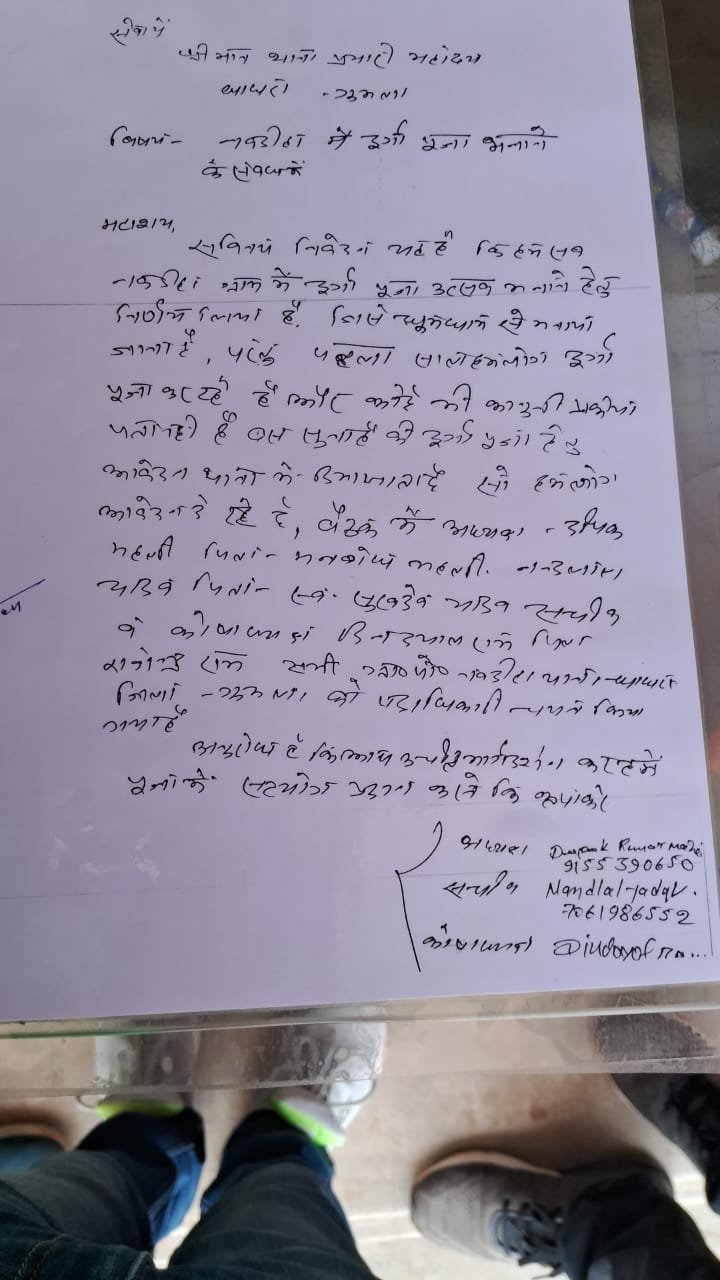 सेवा में
श्रीमान थाना प्रभारी महोदय
घाघरा - गुमला
विषय - नवडीहा में दुर्गा पूजा मनाने
के संबंध में
महाशय,
सविनय निवेदन यह है कि हम सब
नवडीहा ग्राम में दुर्गा पूजा उत्सव मनाने हेतु
निर्णय लिया है, जिसे धूमधाम से मनाया
जाता है, परंतु पहला साल हमलोग दुर्गा
पूजा कर रहे हैं और कोई भी कानुनी प्रकीया
पता नही है बस सुना है की दुर्गा पूजा हेतु
आवेदन थाना में दिया जाता है सो हमलोग
आवेदन दे रहे है, बैठक में अध्यक्ष - दीपक
महली पिता - महली. नन्दलाल
यादव पिता - स्व. सुखदेव यादव सचीव
व कोषाध्यक्ष राम पिता
राजेन्द्र राम सभी ग्रा०पो० नवडीहा थाना - घाघरा
जिला - गुमला को पदाधिकारी चयन किया
गया है
अनुरोध है कि आप मार्गदर्शन
पूजा में सहयोग प्रदान करने कि कृपा करे
अध्यक्ष Deepak Kumar
9155390650
सचीव Nandlal yadav.
7061986552
कोषाध्यक्ष